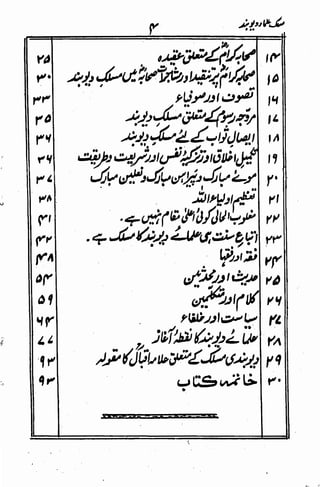 مسلک علماء دیوبند ۴
۱۴ صحابہ کرامؓ کے متعلق عقیدہ ۲۵
۱۵ صحابہ کرامؓ پر تنقید اور مشاجرات صحابہؓ میں مسلک دیوبند ۳۰
۱۶ تصوف اور صوفیاء ۳۳
۱۷ مروجہ رسوم کے متعلق مسلک دیوبند ۳۵
۱۸ ایصالِ ثواب کے لئے مسلک دیوبند ۳۶
۱۹ تکمیل اخلاق اور تزکیۂ نفس اور شریعت و طریقت ۳۶
۲۰ موئے مبارک و پیراہن مبارک و نعلین مبارک ۳۷
۲۱ تعظیم اولیاء اللہ ۳۸
۲۲ مغلوب الحالی کوئی اعلیٰ مقام نہیں ہے۔ ۴۱
۲۳ اتباعِ سنت ہی علمائے دیوبند کا مسلک ہے۔ ۴۲
۲۴ فقہ اور فقہا ۴۸
۲۵ حدیث اور محدثین ۵۴
۲۶ کلام اور متکلمین ۵۹
۲۷ سیاست اور خلفاء ۶۴
۲۸ علمائے دیوبند کا نقطۂ آغاز ۷۷
۲۹ دیوبندی مسلک کے متعلق علامہ اقبالؒ کا مقولہ ۹۳
۳۰ خاتمہ کتاب ۹۳